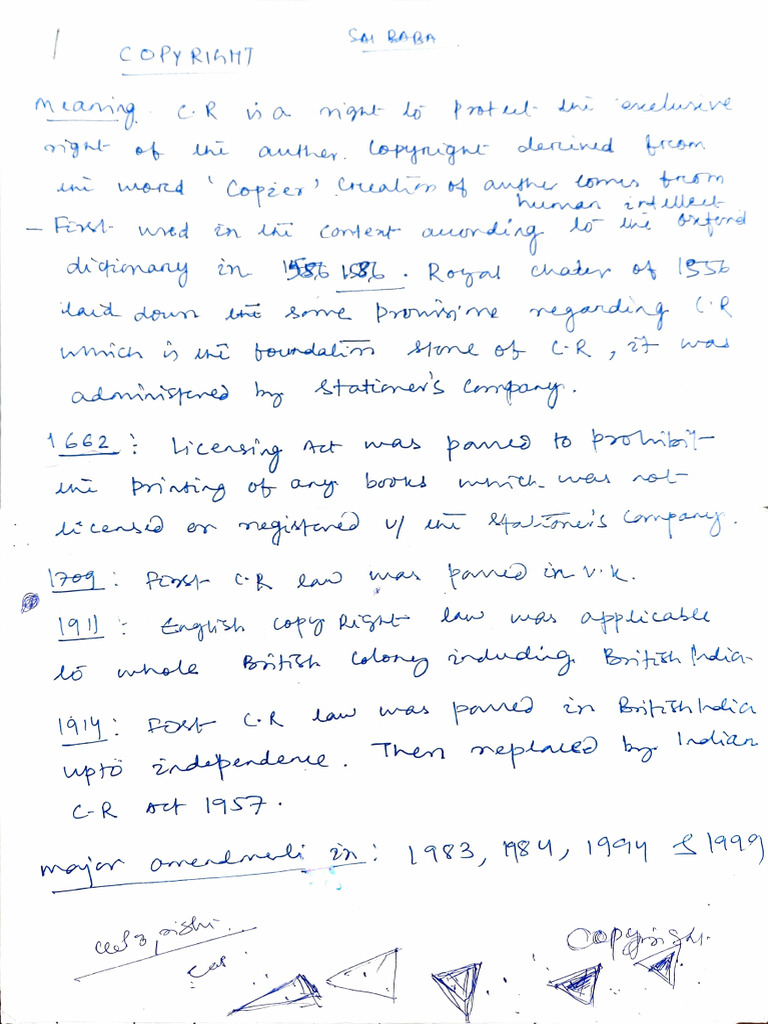 1
SAI BABA
COPYRIGHT
Meaning. C.R is a right to protect the exclusive
right of the auther. Copyright derived from
the word 'Copier' Creation of auther comes from
human intellect
- First used in the context according to the Oxford
dictionary in 1586 1586. Royal chater of 1556
laid down the some provisions regarding C.R
which is the foundation stone of C-R, it was
administered by Stationer's Company.
1662: Licensing Act was passed to prohibit
the printing of any books which was not
licensed or registered w/ the Stationer's Company.
1709: First C.R law was passed in U.K.
1911: English Copy Right law was applicable
to whole British Colony including British India
1914: First C.R law was passed in British India
upto independence. Then replaced by Indian
C-R Act 1957.
major amendments in: 1983, 1984, 1994 & 1999
Copyright.